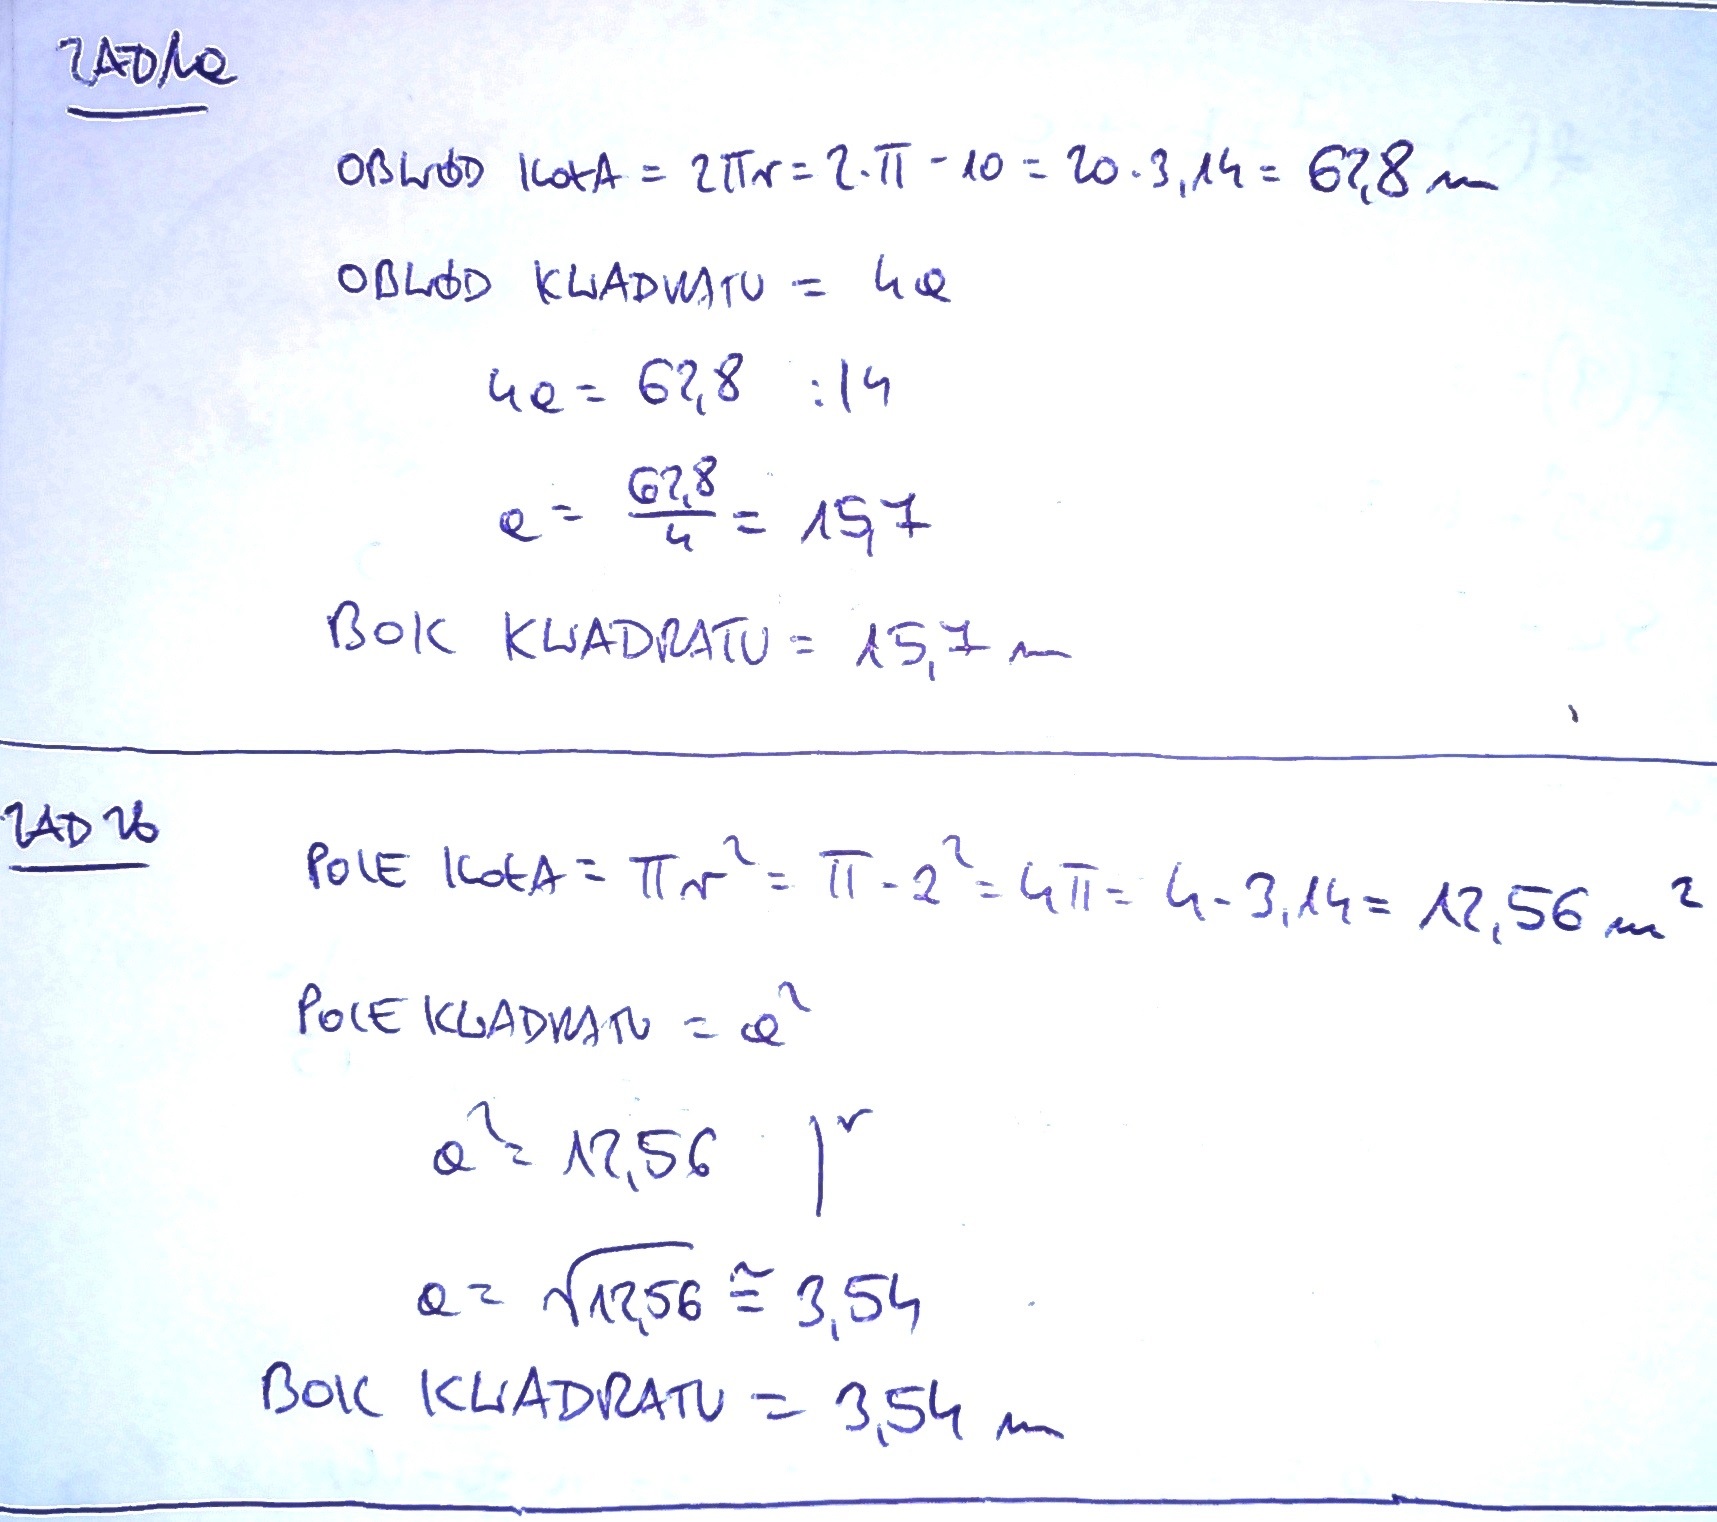 ZAD 1a
OBWÓD KOŁA = 2πr = 2·π·10 = 20·3,14 = 62,8 m
OBWÓD KWADRATU = 4a
4a = 62,8 :|4
a = 62,8/4 = 15,7
BOK KWADRATU = 15,7 m
ZAD 2b
POLE KOŁA = πr² = π·2² = 4π = 4·3,14 = 12,56 m²
POLE KWADRATU = a²
a² = 12,56 |√
a = √12,56 ≅ 3,54
BOK KWADRATU = 3,54 m